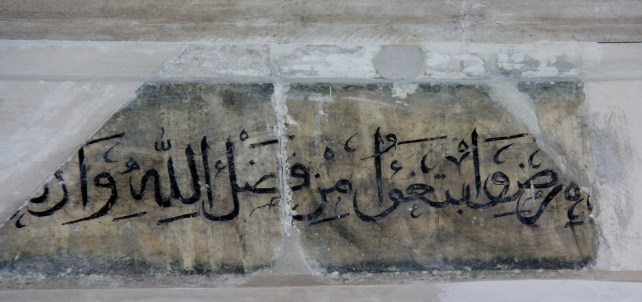 رْضِ وَابْتَغُوا مِنْ فَضْلِ اللّٰهِ وَاذْ